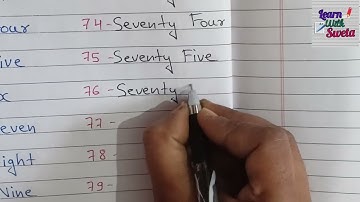 our 74-Seventy Four
ive 75-Seventy Five
x 76-Seventy
even 77-
ight 78-
Nine 79-
Learn
With
Sweta